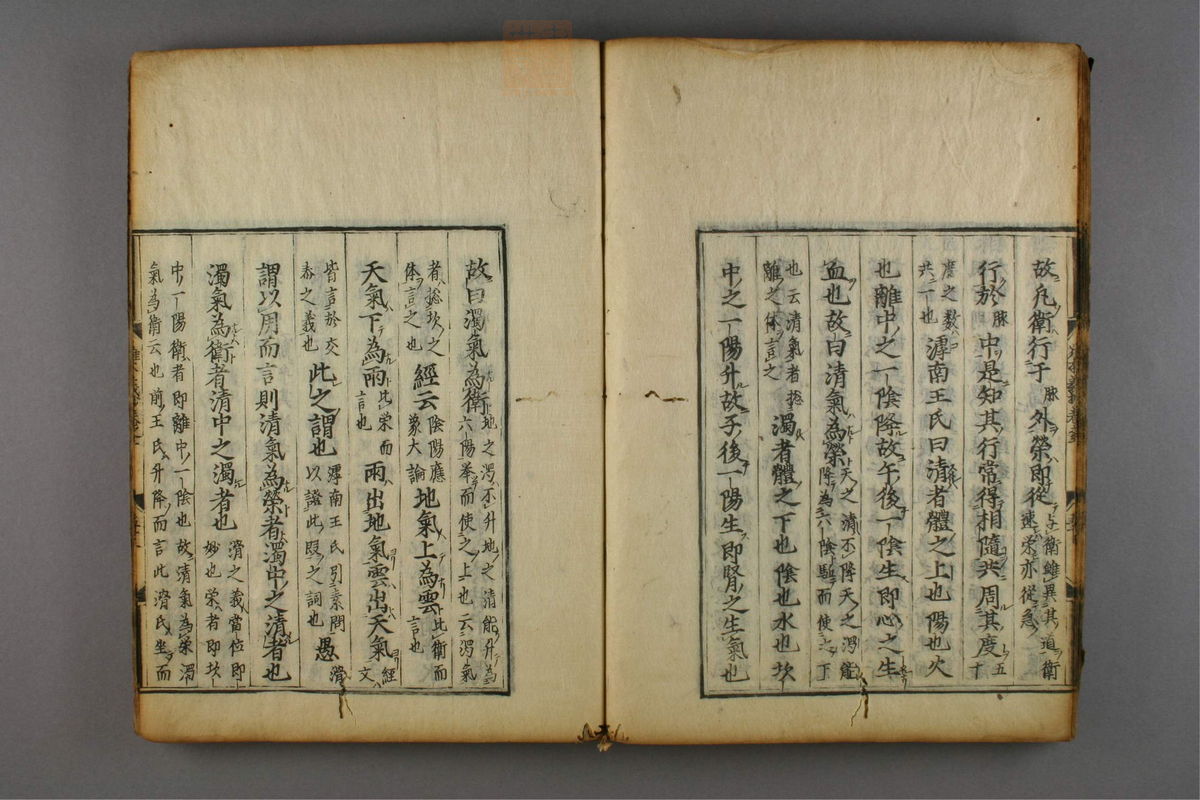 故凡衛行于脉外榮即從与衛雖異其道衛速榮亦從急
行於脉中是知其行常得相隨共周其度五十
度之数共一也滹南王氏曰清者體之上也陽也火
也離中之一陰降故午後一陰生即心之生
血也故曰清氣為榮天之清不降天之濁能降為六陰驅而使之下
也云清氣者捻離之体言之濁者體之下也陰也水也坎
中之一陽升故子後一陽生即腎之生氣也
故曰濁氣為衛地之濁不升地之清能升為六陽举而使之上也云濁氣
者捻坎之体言之也經云陰陽應象大論地氣上為雲此衛而言也
天氣下為雨此栄而言也雨出地氣雲出天氣經文
皆言於交泰之義也此之謂也滹南王氏引素問以證此叚之詞也愚滑
謂以用而言則清氣為榮者濁中之清者也
濁氣為衛者清中之濁者也滑之義當位即妙也栄者即坎
中一陽衛者即離中一陰也故清氣為栄濁氣為衛云也前王氏升降而言此滑氏坐而